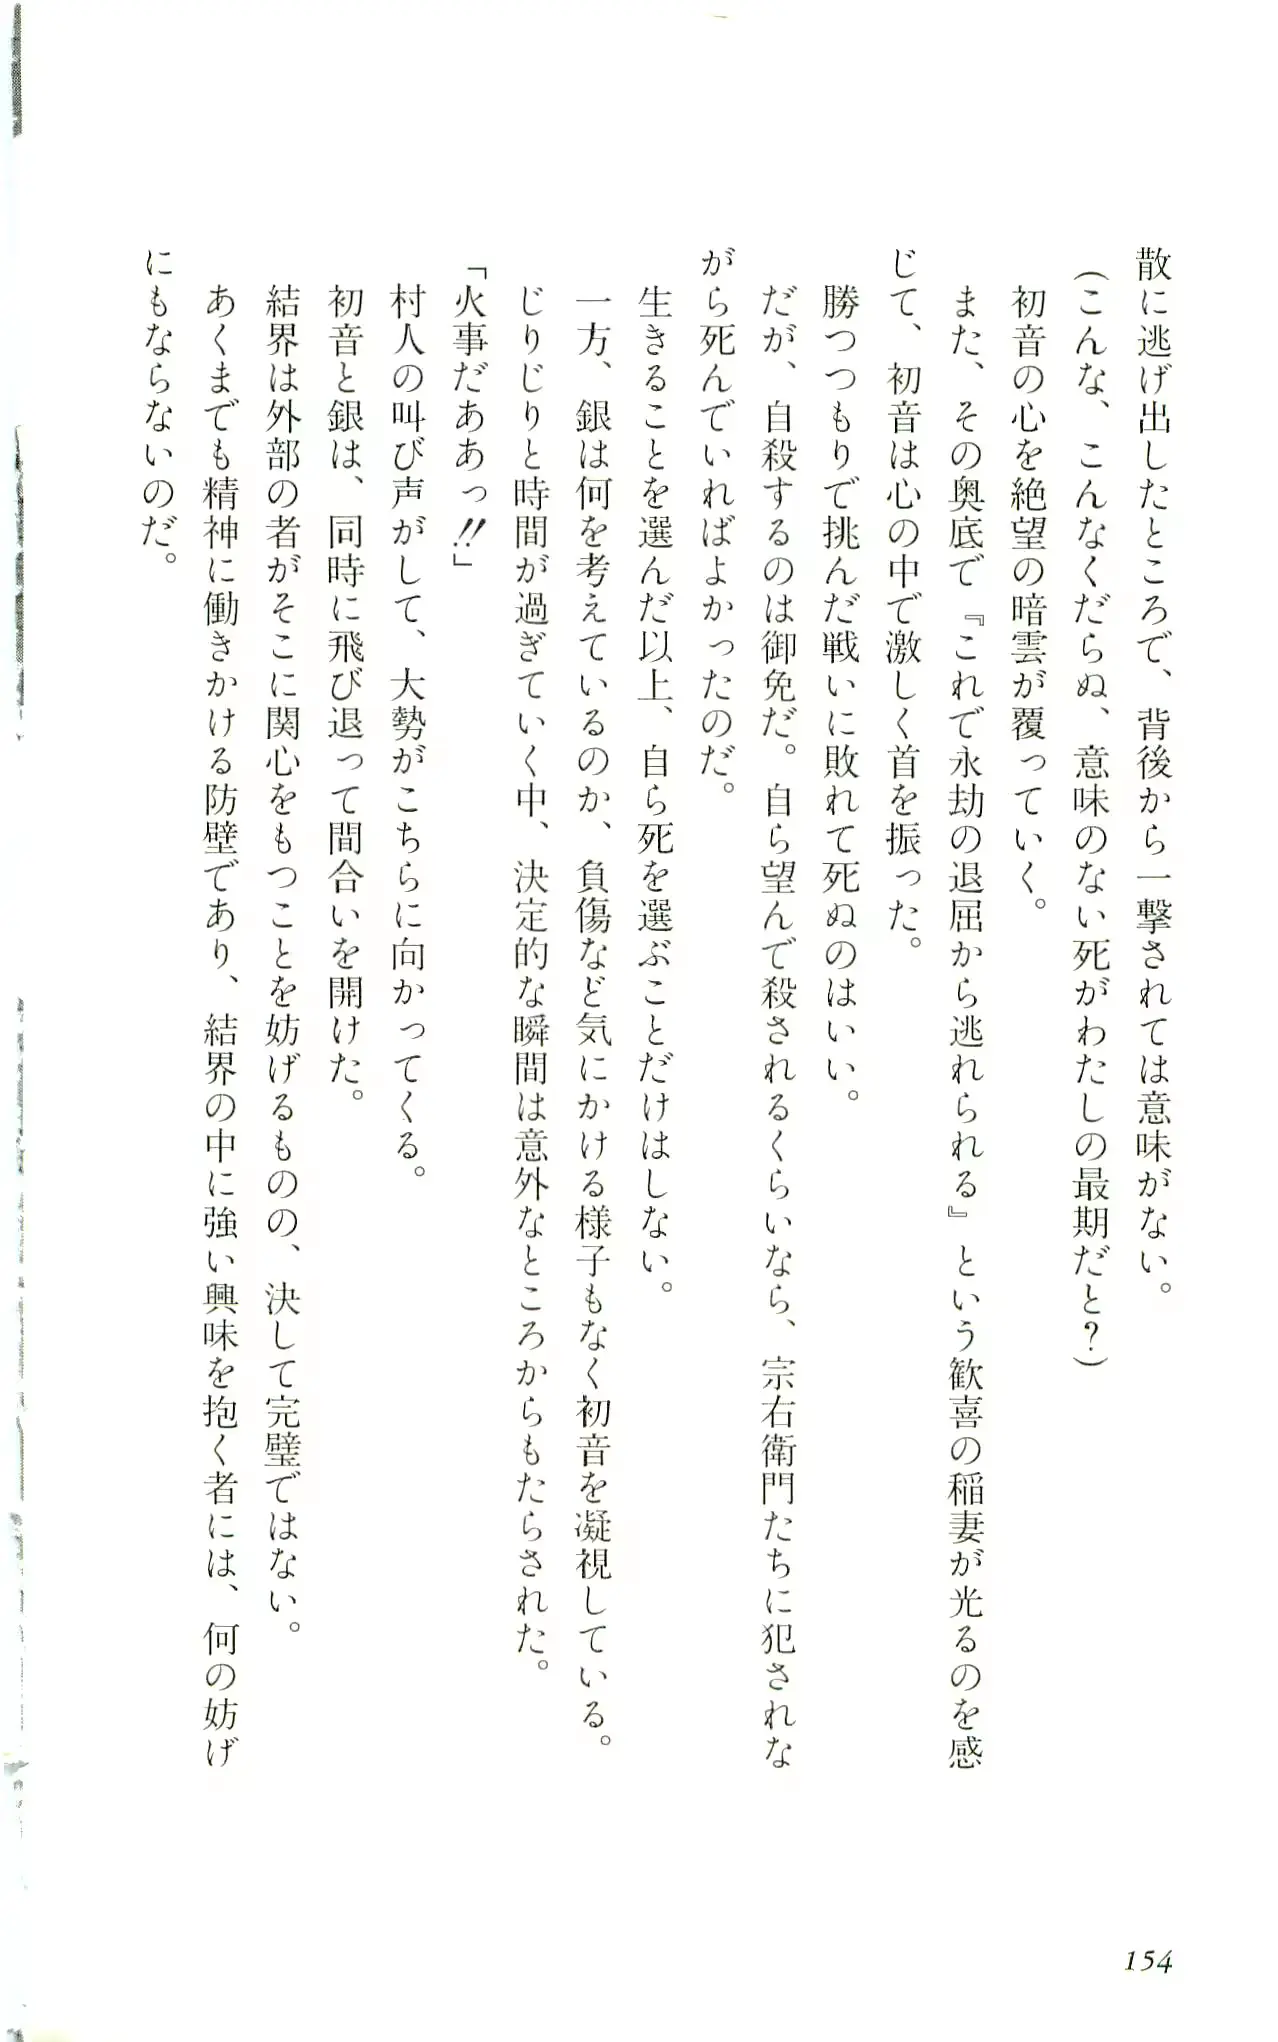 散に逃げ出したところで、背後から一撃されては意味がない。
(こんな、こんなくだらぬ、意味のない死がわたしの最期だと?)
初音の心を絶望の暗雲が覆っていく。
また、その奥底で『これで永劫の退屈から逃れられる』という歓喜の稲妻が光るのを感
じて、初音は心の中で激しく首を振った。
勝つつもりで挑んだ戦いに敗れて死ぬのはいい。
だが、自殺するのは御免だ。自ら望んで殺されるくらいなら、宗右衛門たちに犯されな
がら死んでいればよかったのだ。
生きることを選んだ以上、自ら死を選ぶことだけはしない。
一方、銀は何を考えているのか、負傷など気にかける様子もなく初音を凝視している。
じりじりと時間が過ぎていく中、決定的な瞬間は意外なところからもたらされた。
「火事だああっ!!」
村人の叫び声がして、大勢がこちらに向かってくる。
初音と銀は、同時に飛び退って間合いを開けた。
結界は外部の者がそこに関心をもつことを妨げるものの、決して完璧ではない。
あくまでも精神に働きかける防壁であり、結界の中に強い興味を抱く者には、何の妨げ
にもならないのだ。
154